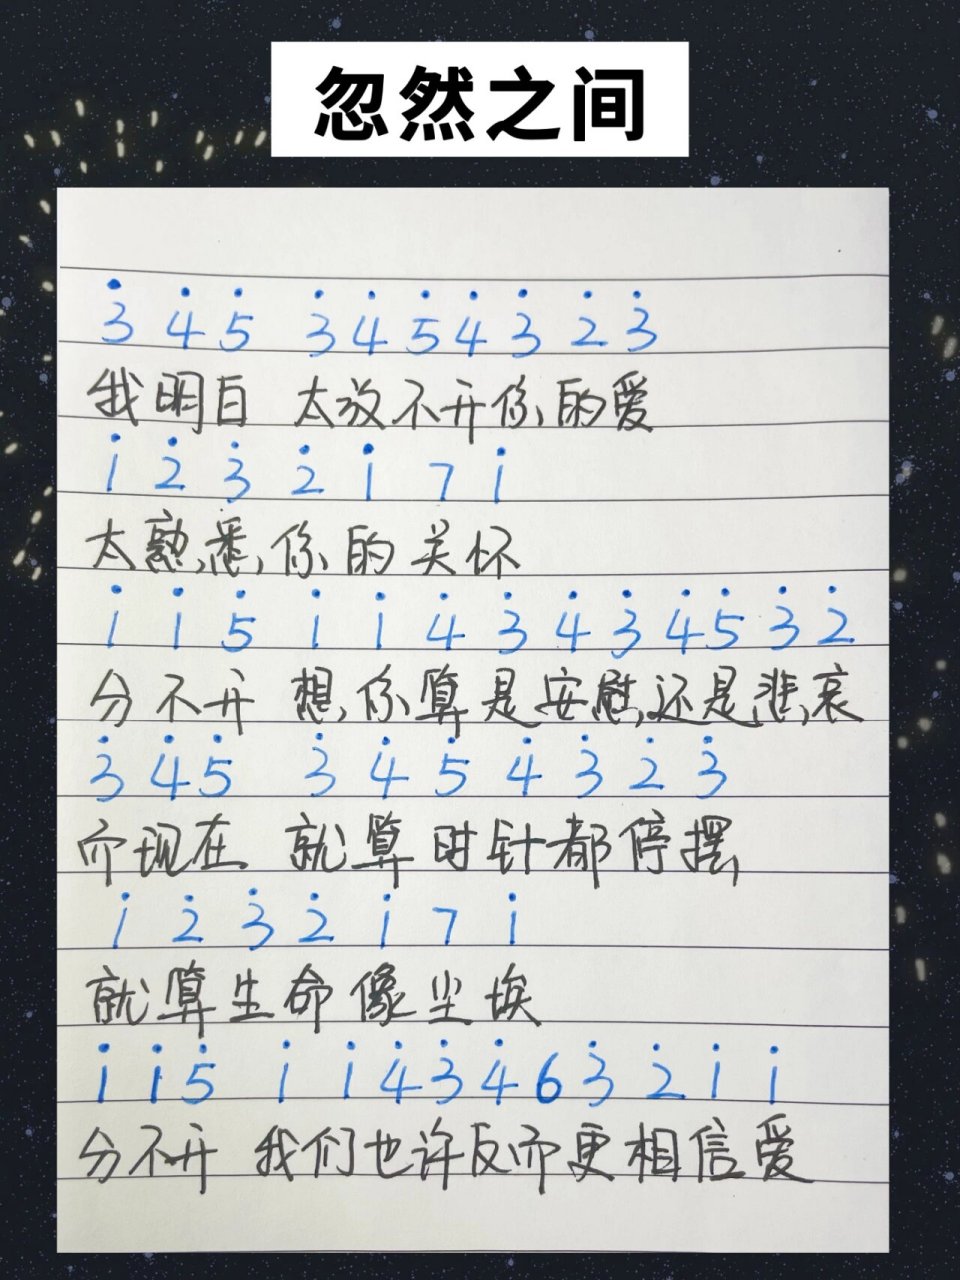 忽然之间
3̇ 4̇ 5̇ 3̇ 4̇ 5̇ 4̇ 3̇ 2̇ 3̇
我明白 太放不开你的爱
1̇ 2̇ 3̇ 2̇ 1̇ 7 1̇
太熟悉你的关怀
1̇ 1̇ 5̇ 1̇ 1̇ 4̇ 3̇ 4̇ 3̇ 4̇ 5̇ 3̇ 2̇
分不开 想你算是安慰还是悲哀
3̇ 4̇ 5̇ 3̇ 4̇ 5̇ 4̇ 3̇ 2̇ 3̇
而现在 就算时针都停摆
1̇ 2̇ 3̇ 2̇ 1̇ 7 1̇
就算生命像尘埃
1̇ 1̇ 5̇ 1̇ 1̇ 4̇ 3̇ 4̇ 6 3̇ 2̇ 1̇ 1̇
分不开 我们也许反而更相信爱